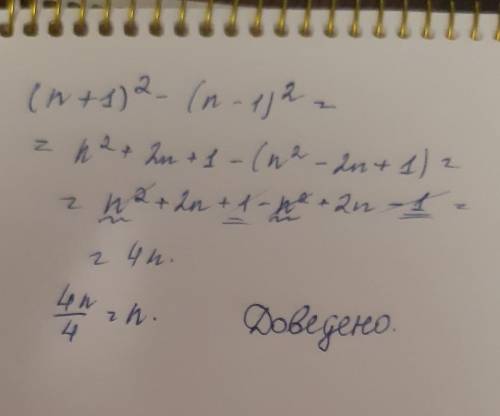 (n+1)² - (n-1)² =
= n² + 2n + 1 - (n² - 2n + 1) =
= n² + 2n + 1 - n² + 2n - 1 =
= 4n.
4n/4 = n. Доведено.